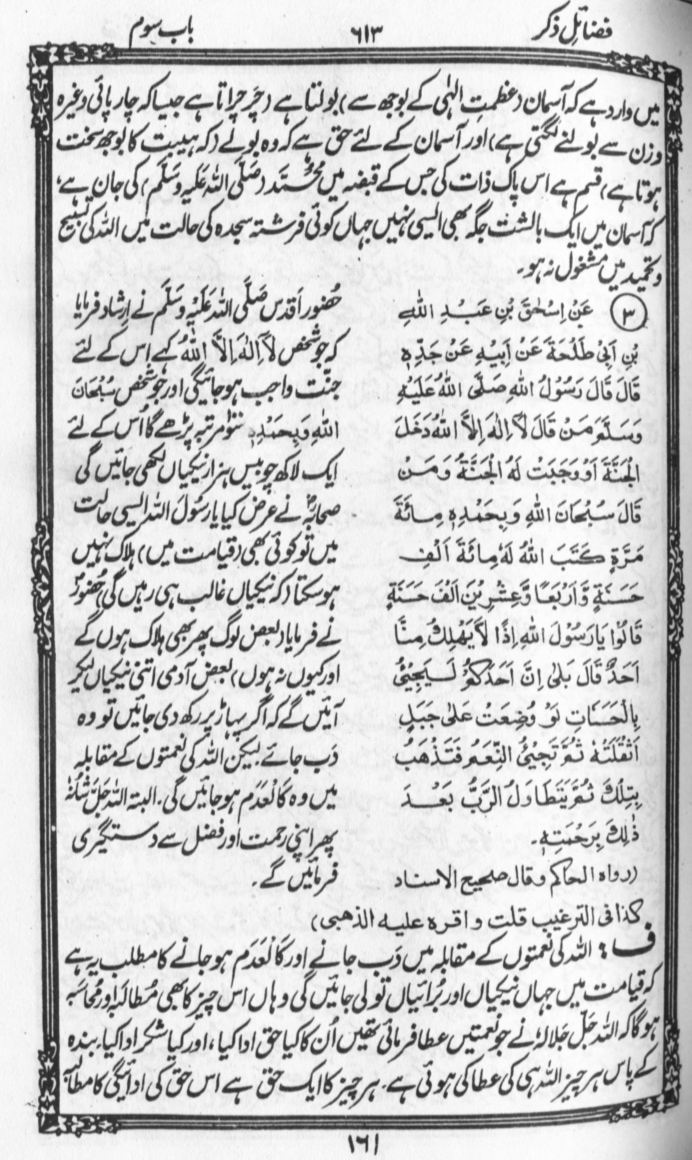 فضائل ذکر
۶۱۳
باب سوم
میں وارد ہے کہ آسمان (عظمتِ الٰہی کے بوجھ سے) بولتا ہے (چرچراتا ہے جیسا کہ چارپائی وغیرہ
وزن سے بولنے لگتی ہے) اور آسمان کے لئے حق ہے کہ وہ بولے (کہ ہیبت کا بوجھ سخت
ہوتا ہے) قسم ہے اس پاک ذات کی جس کے قبضہ میں محمّد (صلّی اللہ علیہ وسلّم) کی جان ہے،
کہ آسمان میں ایک بالشت جگہ بھی ایسی نہیں جہاں کوئی فرشتہ سجدہ کی حالت میں اللہ کی تسبیح
وتحمید میں مشغول نہ ہو۔
(۳) عَنْ اِسْحٰقَ بْنِ عَبْدِ اللهِ
بْنِ اَبِیْ طَلْحَةَ عَنْ اَبِیْهِ عَنْ جَدِّهٖ
قَالَ قَالَ رَسُوْلُ اللهِ صَلَّى اللهُ عَلَیْهِ
وَسَلَّمَ مَنْ قَالَ لَآ اِلٰهَ اِلَّا اللهُ دَخَلَ
الْجَنَّةَ اَوْ وَجَبَتْ لَهُ الْجَنَّةُ وَمَنْ
قَالَ سُبْحَانَ اللهِ وَبِحَمْدِهٖ مِائَةَ
مَرَّةٍ كَتَبَ اللهُ لَهٗ مِائَةَ اَلْفِ
حَسَنَةٍ وَّاَرْبَعًا وَّعِشْرِیْنَ اَلْفَ حَسَنَةٍ
قَالُوْا یَا رَسُوْلَ اللهِ اِذًا لَّا یَهْلِكُ مِنَّا
اَحَدٌ قَالَ بَلٰى اِنَّ اَحَدَكُمْ لَیَجِیْئُ
بِالْحَسَنَاتِ لَوْ وُضِعَتْ عَلٰى جَبَلٍ
اَثْقَلَتْهُ ثُمَّ تَجِیْئُ النِّعَمُ فَتَذْهَبُ
بِتِلْكَ ثُمَّ یَتَطَاوَلُ الرَّبُّ بَعْدَ
ذٰلِكَ بِرَحْمَتِهٖ۔
(رواه الحاكم وقال صحیح الاسناد
كذا فی الترغیب قلت واقره علیه الذهبی)
حضورِ اقدس صَلَّی اللہ عَلَیْہِ وَسَلَّم نے ارشاد فرمایا
کہ جو شخص لَآ اِلٰہَ اِلَّا اللہُ کہے اس کے لئے
جنّت واجب ہو جائیگی اور جو شخص سُبْحَانَ
اللهِ وَبِحَمْدِهٖ سَو مرتبہ پڑھے گا اُس کے لئے
ایک لاکھ چوبیس ہزار نیکیاں لکھی جائیں گی
صحابہؓ نے عرض کیا یا رسُولَ اللہ ایسی حالت
میں تو کوئی بھی (قیامت میں) ہلاک نہیں
ہو سکتا (کہ نیکیاں غالب ہی رہیں گی) حضورؐ
نے فرمایا (بعض لوگ پھر بھی ہلاک ہوں گے
اور کیوں نہ ہوں) بعض آدمی اتنی نیکیاں لیکر
آئیں گے کہ اگر پہاڑ پر رکھ دی جائیں تو وہ
دَب جائے لیکن اللہ کی نعمتوں کے مقابلہ
میں وہ کالعدم ہو جائیں گی۔ البتہ اللہ جَلَّ شَانُہٗ
پھر اپنی رحمت اور فضل سے دستگیری
فرمائیں گے۔
ف: اللہ کی نعمتوں کے مقابلہ میں دَب جانے اور کالعدم ہو جانے کا مطلب یہ ہے
کہ قیامت میں جہاں نیکیاں اور برائیاں تولی جائیں گی وہاں اس چیز کا بھی مُطالبہ اور مُحاسبہ
ہو گا کہ اللہ جلّ جلالہٗ نے جو نعمتیں عطا فرمائی تھیں اُن کا کیا حق ادا کیا، اور کیا شکر ادا کیا، بندہ
کے پاس ہر چیز اللہ ہی کی عطا کی ہوئی ہے۔ ہر چیز کا ایک حق ہے اس حق کی ادائیگی کا مطالبہ
۱۶۱